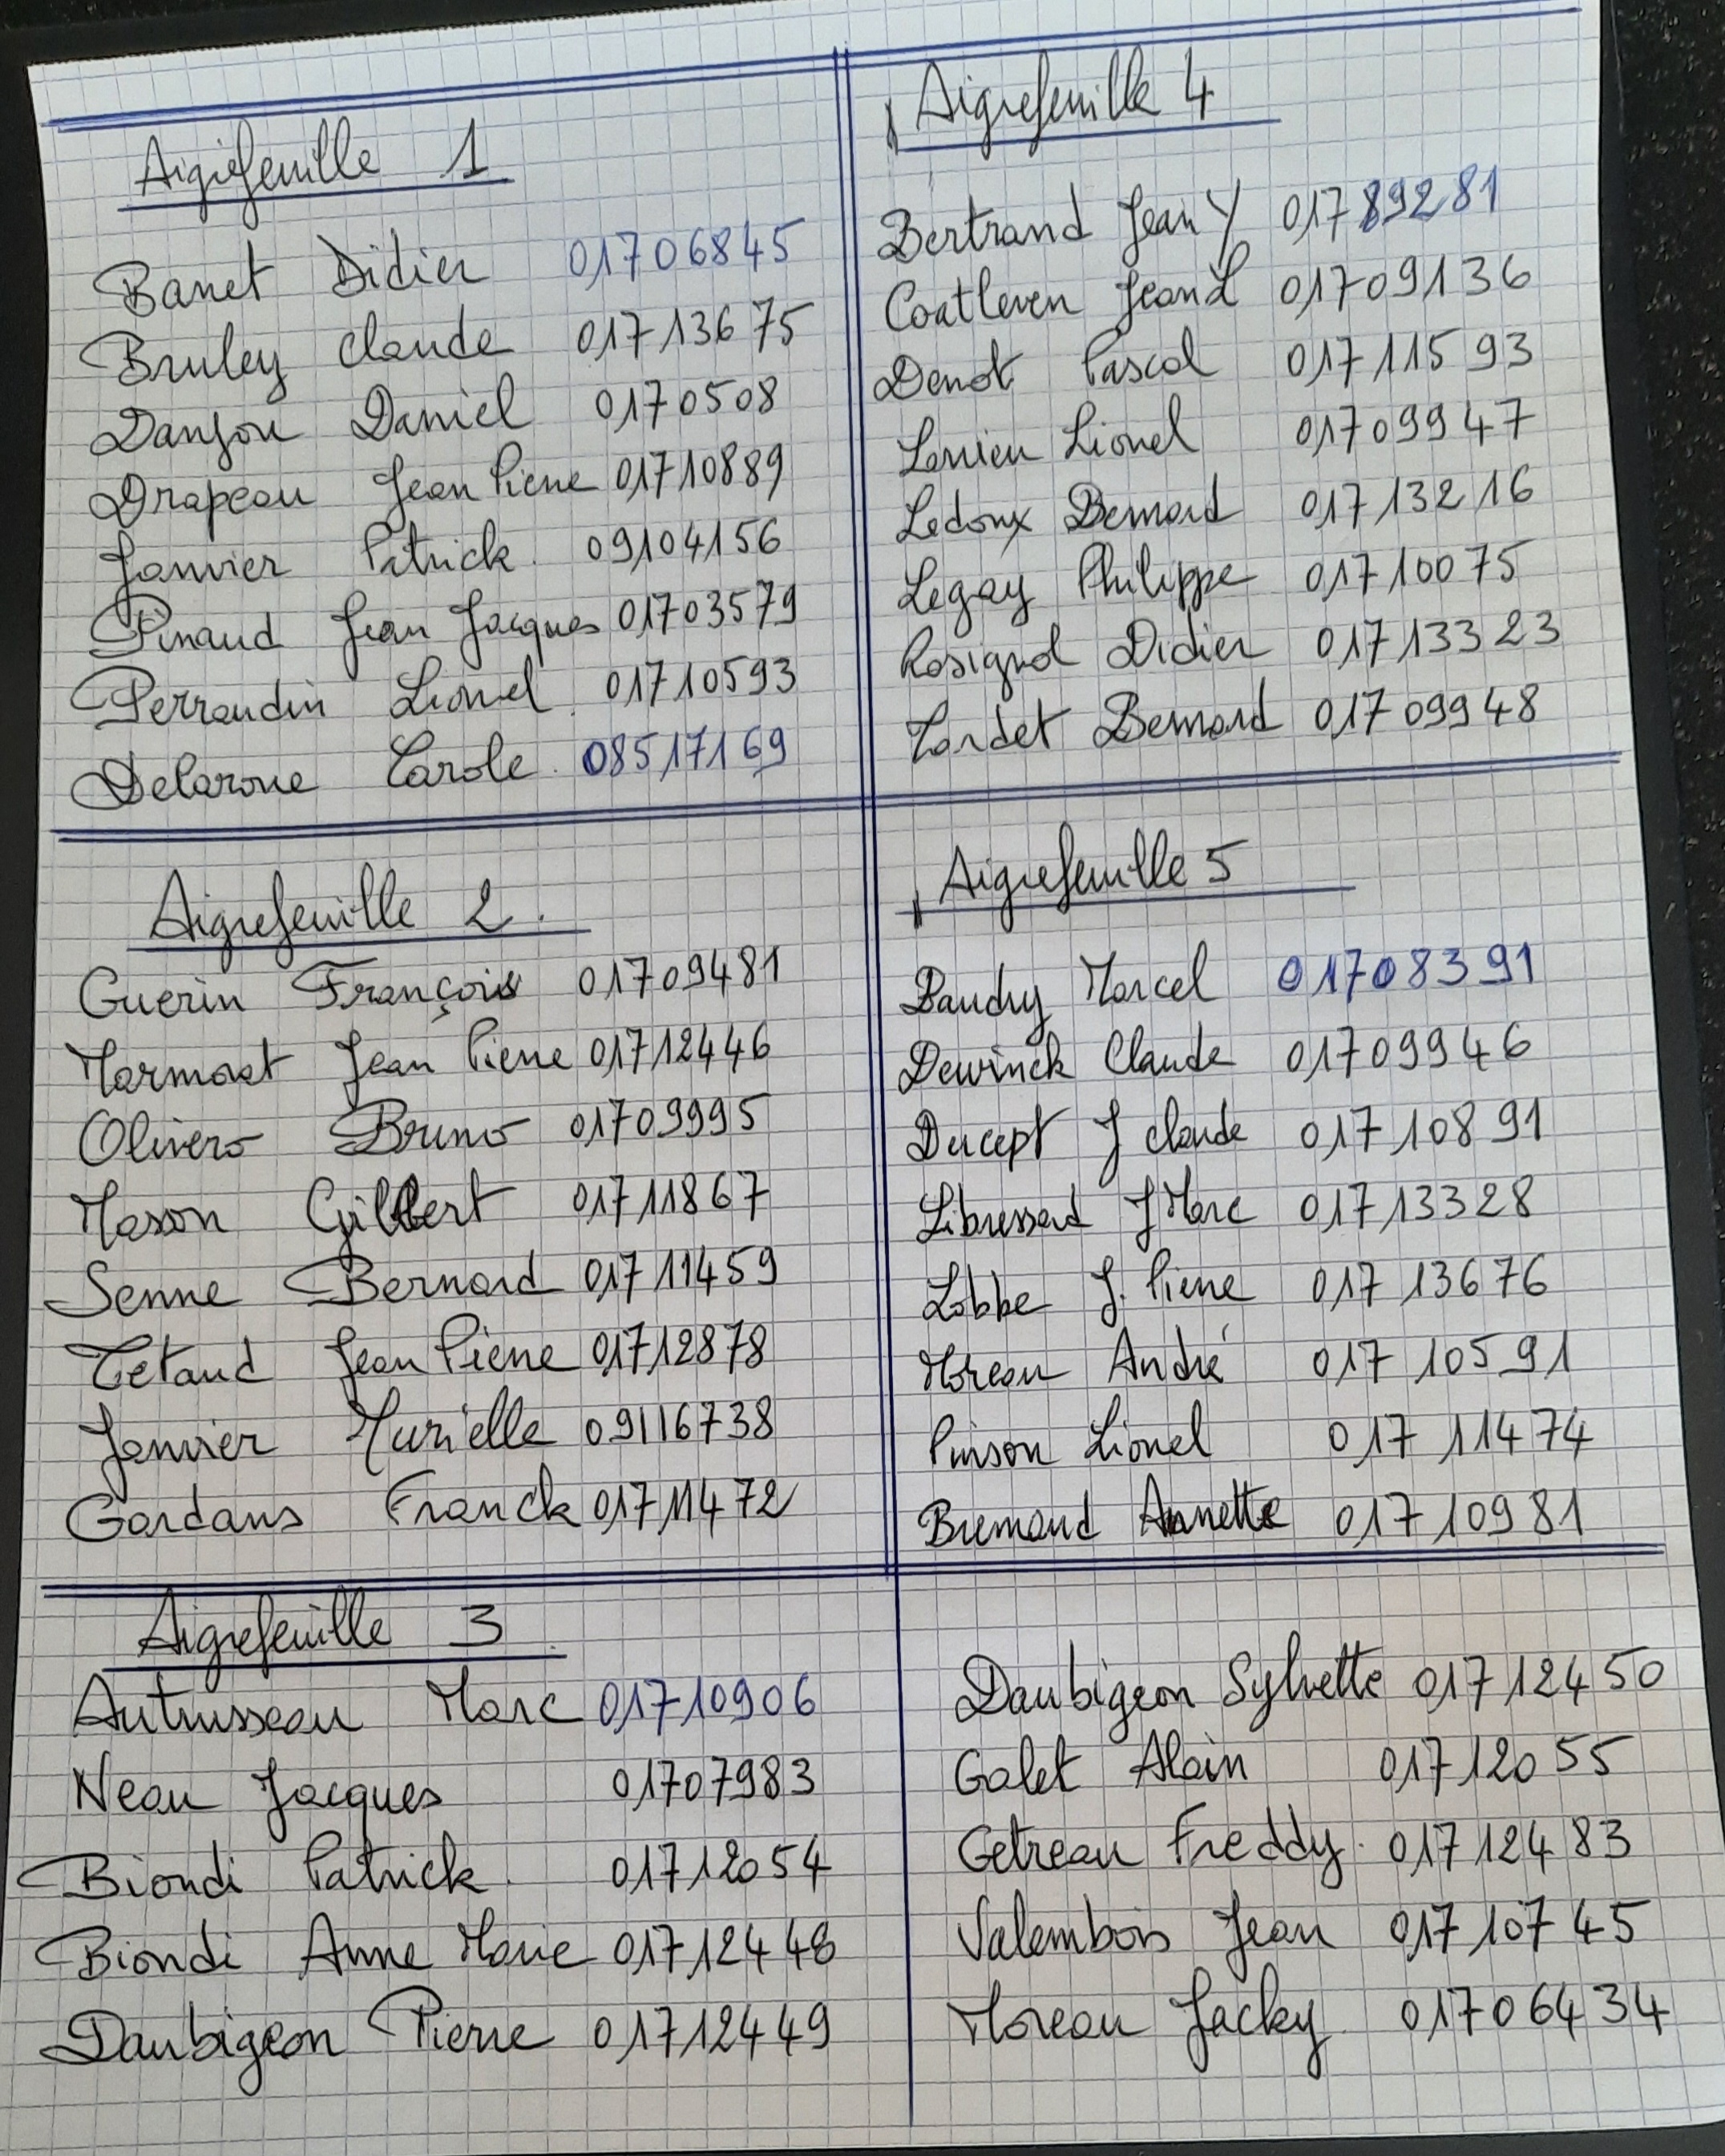 Aigrefeuille 1
Banet Didier 01706845
Bruley Claude 01713675
Danjou Daniel 0170508
Drapeau Jean Pierre 01710889
Janvier Patrick 09104156
Pinaud Jean Jacques 01703579
Perraudin Lionel 01710593
Delaroue Carole 08517169
Aigrefeuille 2
Guerin François 01709481
Jean Pierre 01712446
Olivero Bruno 01709995
Masson Gilbert 01711867
Senne Bernard 01711459
Tetaud Jean Pierre 01712878
Janvier Murielle 09116738
Gardans Franck 01711472
Aigrefeuille 3
Autrusseau Marc 01710906
Neau Jacques 01707983
Biondi Patrick 01712054
Biondi Anne Marie 01712448
Daubigeon Pierre 01712449
Aigrefeuille 4
Bertrand Jean Y 01789281
Coatleven Jean L 01709136
Denot Pascal 01711593
Lionel 01709947
Ledoux Bernard 01713216
Legay Philippe 01710075
Rosignol Didier 01713323
Tardet Bernard 01709948
Aigrefeuille 5
Baudry Marcel 01708391
Dewinck Claude 01709946
Ducept J Claude 01710891
J Marc 01713328
Labbe J. Pierre 01713676
Moreau André 01710591
Pinson Lionel 01711474
Bremaud Annette 01710981
Daubigeon Sylvette 01712450
Galet Alain 01712055
Getreau Freddy 01712483
Valembois Jean 01710745
Moreau Jacky 01706434